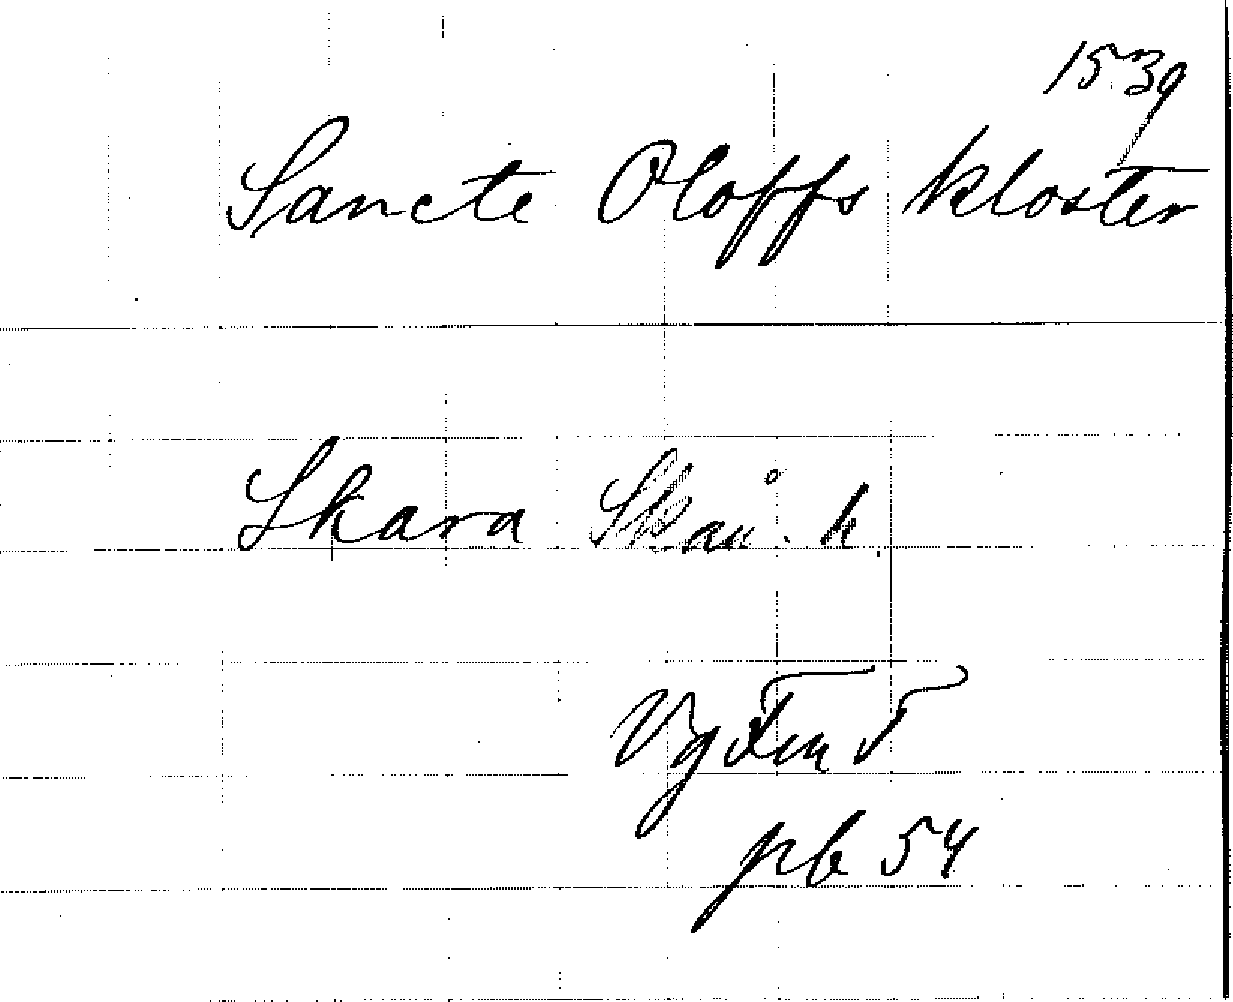 1539
Sancte Oloffs kloster
Skara Skån. h.
Vg
pb 54